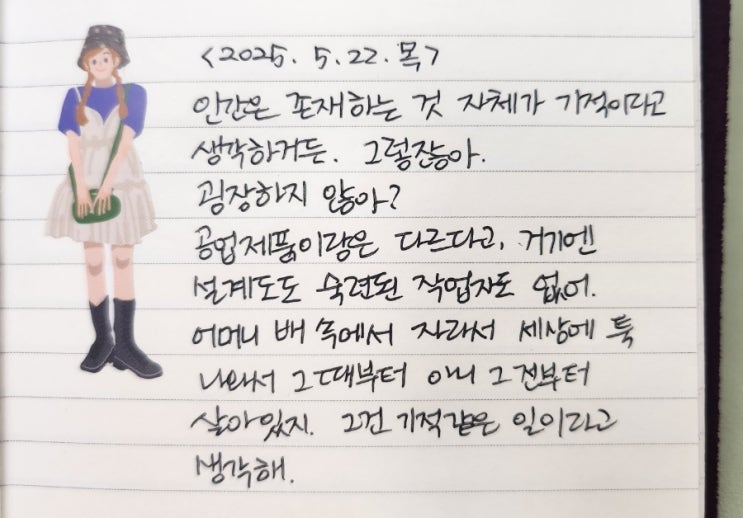 <2025. 5. 22. 목>
인간은 존재하는 것 자체가 기적이라고
생각하거든. 그렇잖아.
굉장하지 않아?
공업제품이랑은 다르다고, 거기엔
설계도도 숙련된 작업자도 없어.
어머니 배 속에서 자라서 세상에 툭
나와서 그때부터 아니 그 전부터
살아있지. 그건 기적같은 일이라고
생각해.